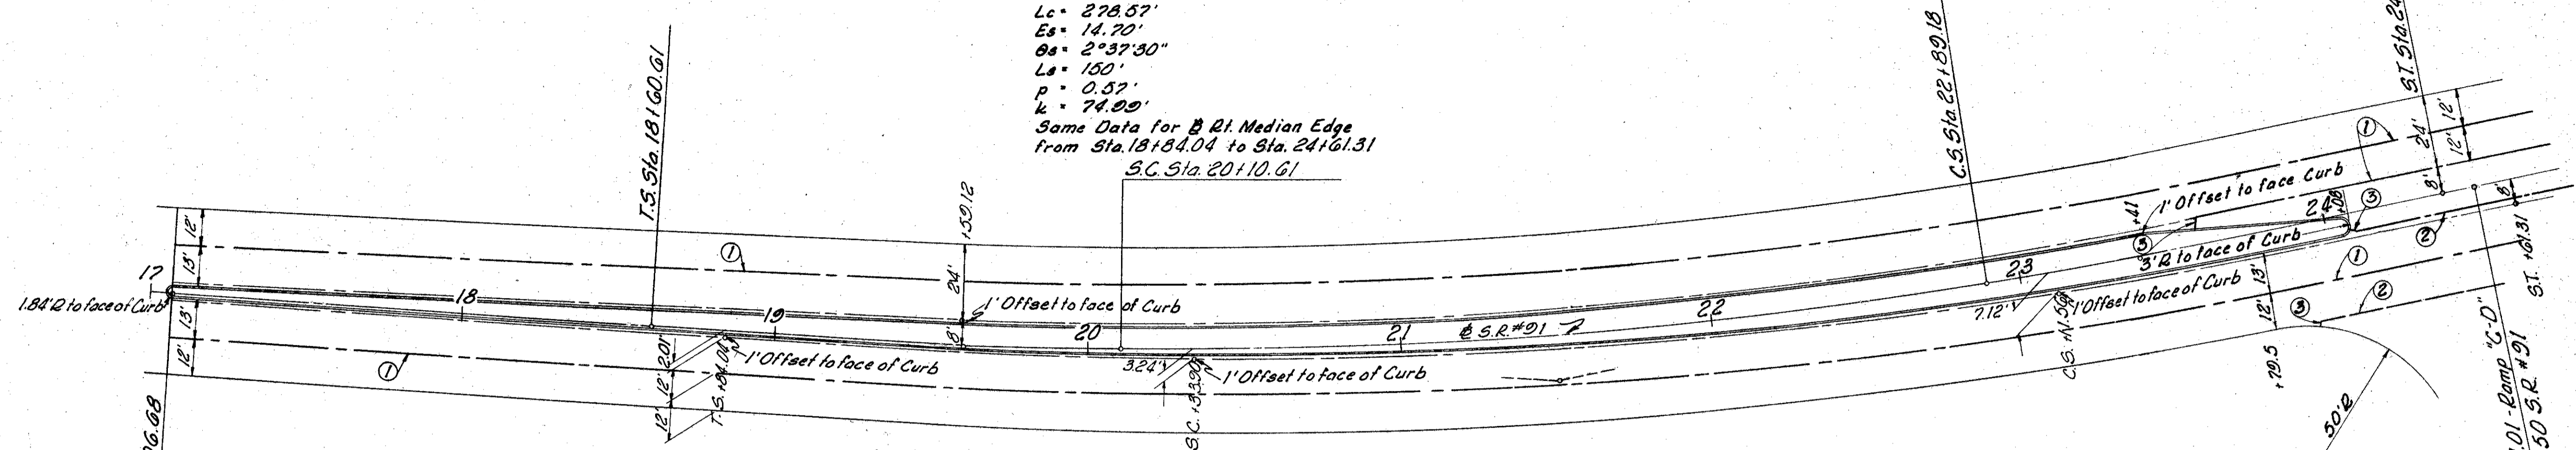 Lc = 278.57'
Es = 14.70'
θs = 2°37'30"
Ls = 150'
p = 0.57'
k = 74.99'
Same Data for ℄ Rt. Median Edge
from Sta. 18+84.04 to Sta. 24+61.31
S.C. Sta. 20+10.61
T.S. Sta. 18+60.61
C.S. Sta. 22+89.18
S.T. Sta. 24
12'
13'
17
1.84' R to face of Curb
13'
12'
18
①
①
19
+59.12
24'
8'
1' Offset to face of Curb
1' Offset to face of Curb
2.01'
12'
12'
T.S. +84.04
20
3.24'
S.C. +33.90
1' Offset to face of Curb
21
℄ S.R. #91
22
23
7.12'
C.S. +11.56
1' Offset to face of Curb
3' R to face of Curb
1' Offset to face Curb
+41
③
24
+08
③
①
24'
12'
12'
8'
8'
②
①
②
③
13'
12'
+79.5
50' R
S.T. +61.31
.01 - Ramp "C-D"
50 S.R. #91
96.68